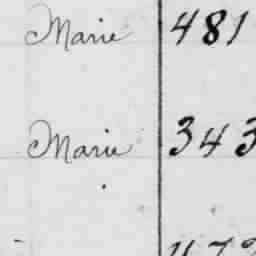 Marie 481
Marie 343